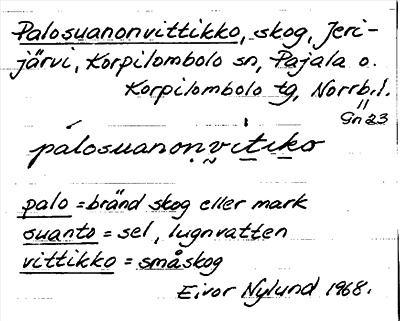 Palosuanonvittikko, skog, Jeri-
järvi, Korpilombolo sn, Pajala o.
Korpilombolo tg, Norrb.l.
Gn 23
pálosuanon̮vitiko
palo = bränd skog eller mark
suanto = sel, lugnvatten
vittikko = småskog
Eivor Nylund 1968.